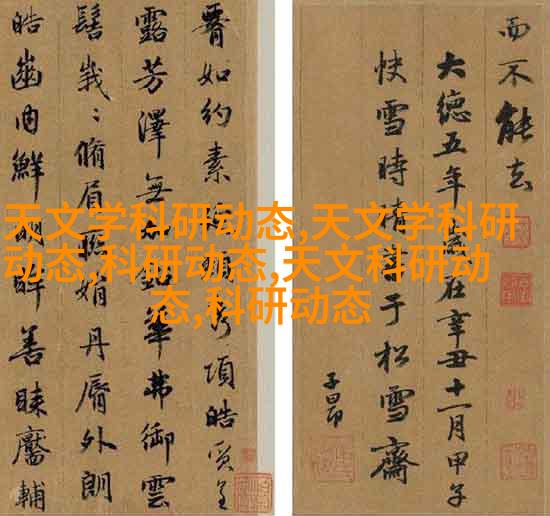 天文学科研动态,天文学科研
动态,科研动态,天文科研动
态,科研动态
而不能去
大德五年在辛丑十一月甲子
快雪時晴書于松雪齋
子昂
如約素項皓質呈
露芳澤無華弗御雲
髻峩〻脩眉聯娟丹脣外朗
皓齒内鮮明眸善睞靨輔